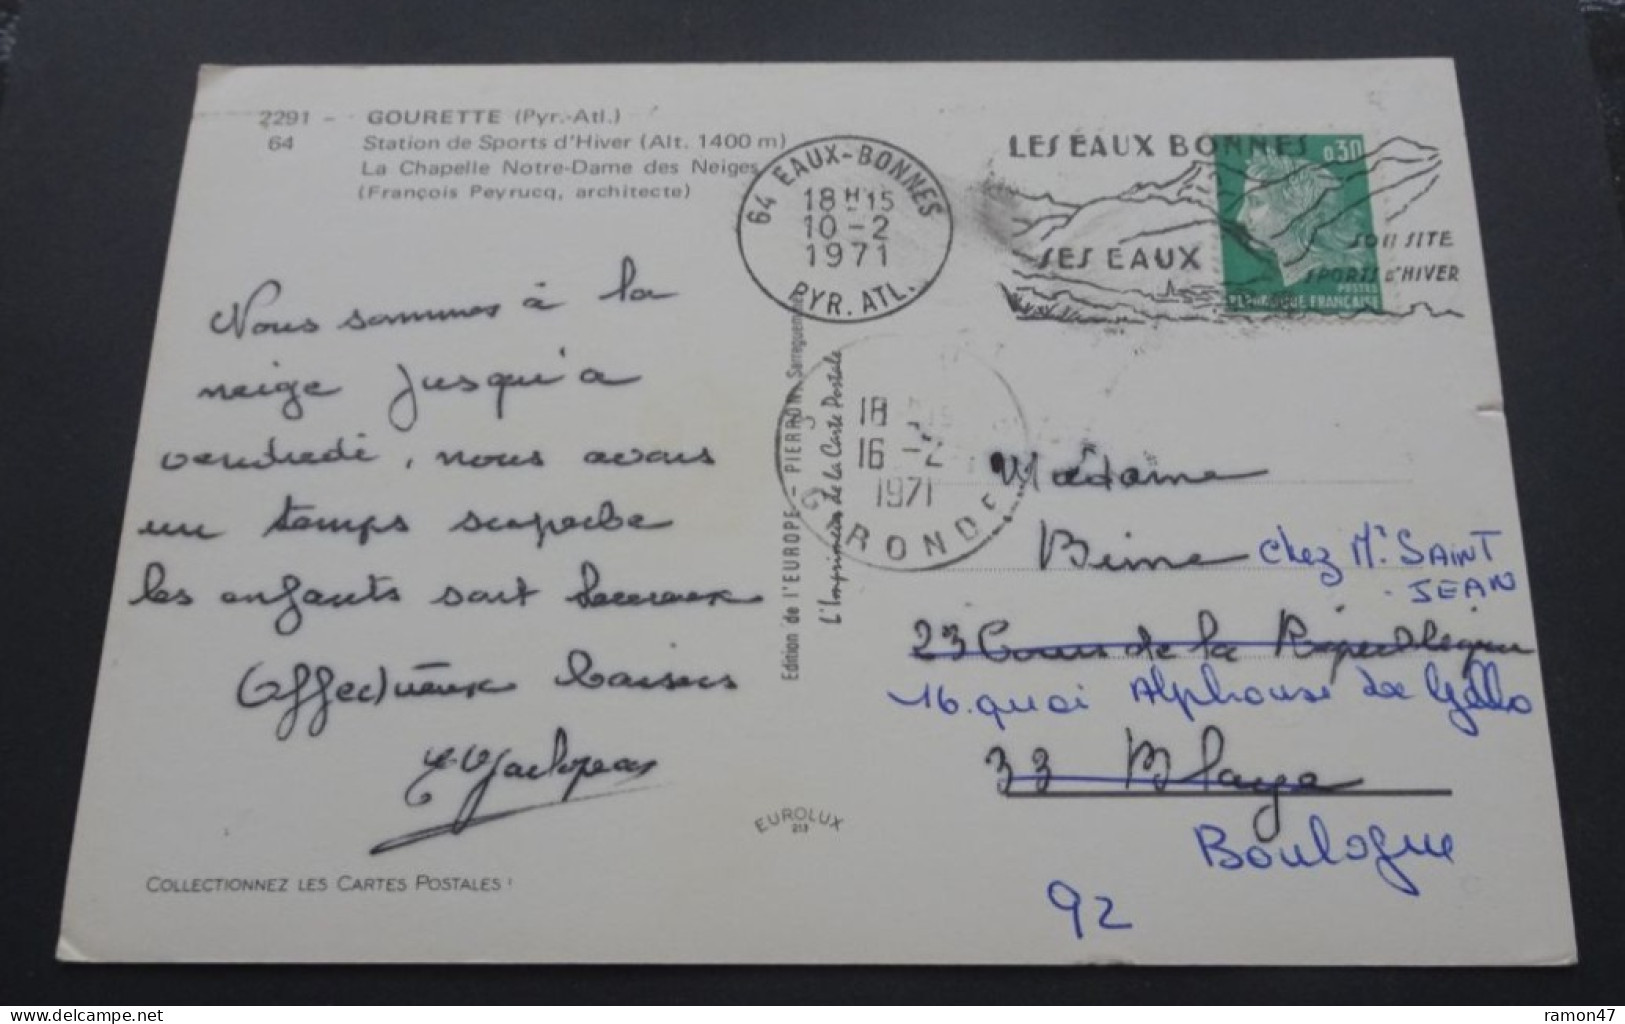 2291 - GOURETTE (Pyr.-Atl.)
64 Station de Sports d'Hiver (Alt. 1400 m)
La Chapelle Notre-Dame des Neiges
(François Peyrucq, architecte)
64 EAUX-BONNES
18 H 15
10 - 2
1971
PYR. ATL.
LES EAUX BONNES
SES EAUX
SON SITE
SPORTS d'HIVER
0,30
POSTES
REPUBLIQUE FRANÇAISE
Nous sommes à la
neige jusqu'à
vendredi, nous avons
un temps superbe
les enfants sont heureux
Affectueux baisers
Edition de l'EUROPE - PIERRON - Sarreguemines
L'Imprimerie de la Carte Postale
18
16 - 2
1971
GIRONDE
Madame
Beime chez Mr SAINT
JEAN
23 Cours de la République
16. quai Alphonse Le Gallo
33 Blaye
Boulogne
92
EUROLUX
213
COLLECTIONNEZ LES CARTES POSTALES !
ramon47